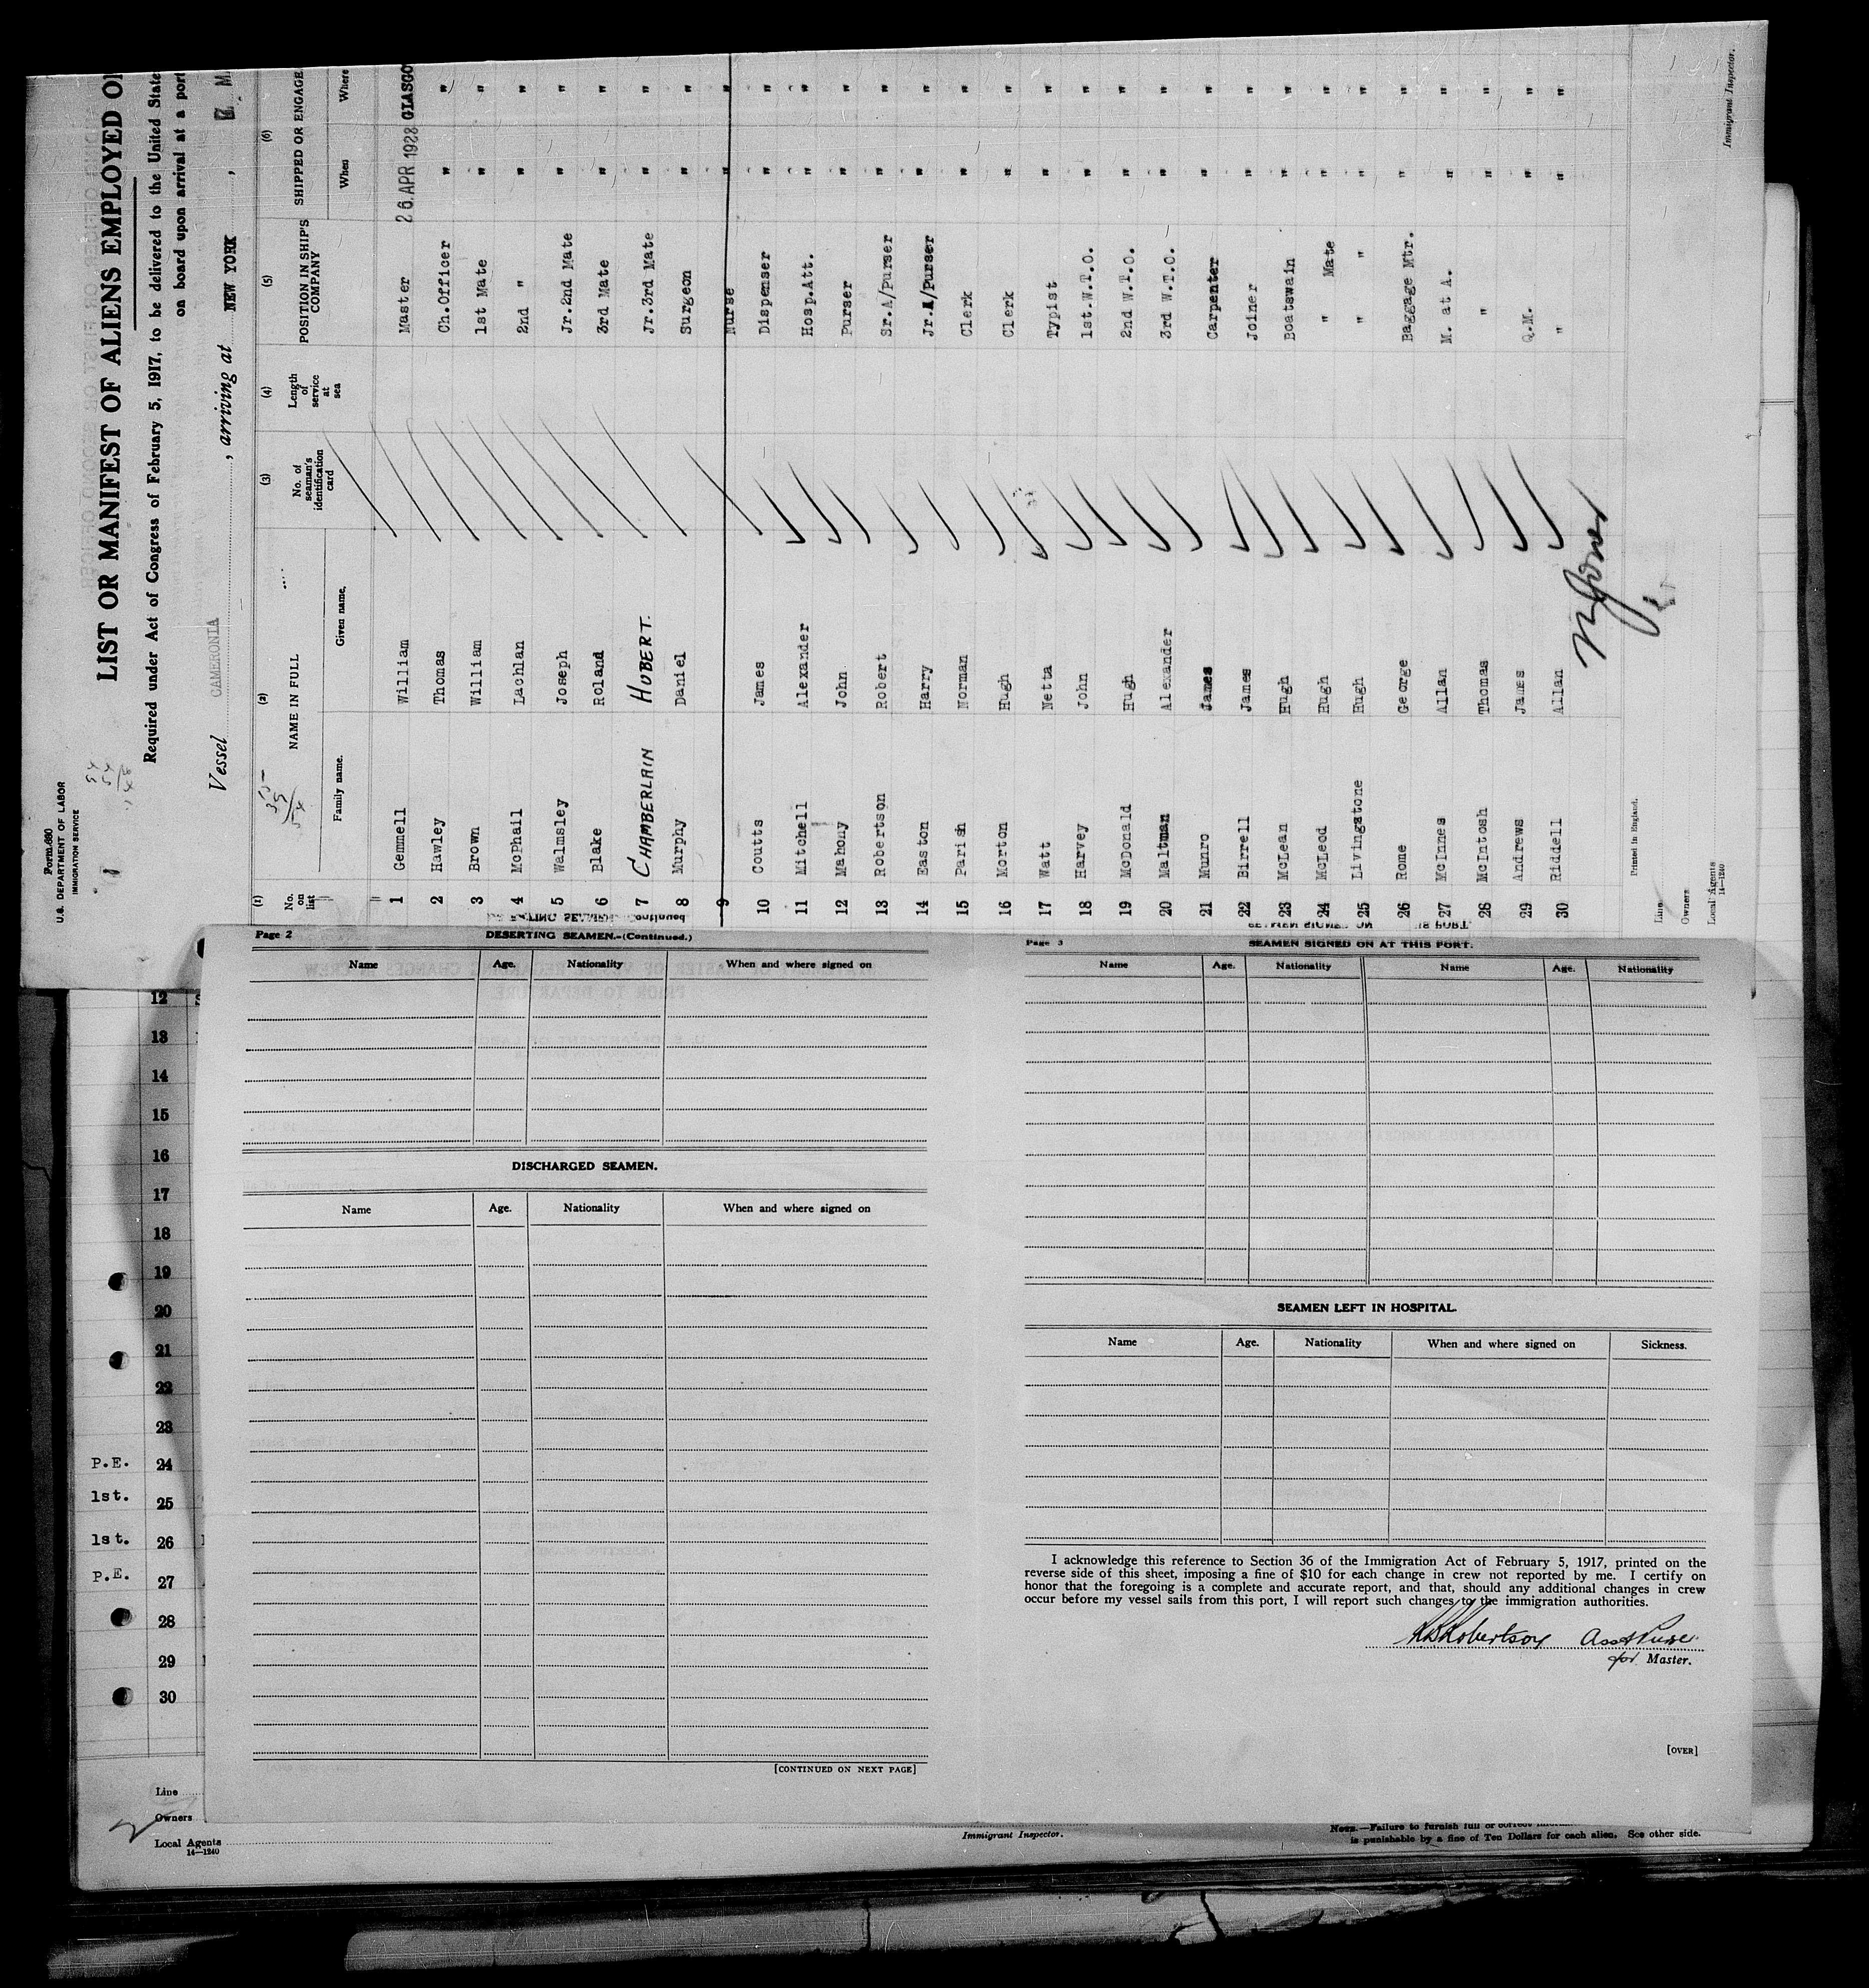 Form 680
U.S. DEPARTMENT OF LABOR
IMMIGRATION SERVICE
LIST OR MANIFEST OF ALIENS EMPLOYED O
Required under Act of Congress of February 5, 1917, to be delivered to the United State
on board upon arrival at a port
Vessel CAMERONIA , arriving at NEW YORK ,
(1) (2) (3) (4) (5) (6)
No. on list NAME IN FULL No. of seaman's identification card Length of service at sea POSITION IN SHIP'S COMPANY SHIPPED OR ENGAGE
Family name. Given name. When Where
1 Gemmell William Master 26.APR 1928 GLASGO
2 Hawley Thomas Ch.Officer " "
3 Brown William 1st Mate " "
4 McPhail Lachlan 2nd " " "
5 Walmsley Joseph Jr.2nd Mate " "
6 Blake Roland 3rd Mate " "
7 CHAMBERLAIN HUBERT. Jr.3rd Mate " "
8 Murphy Daniel Surgeon " "
9 Nurse " "
10 Coutts James Dispenser " "
11 Mitchell Alexander Hosp.Att. " "
12 Mahony John Purser " "
13 Robertson Robert Sr.A/Purser " "
14 Easton Harry Jr.A/Purser " "
15 Parish Norman Clerk " "
16 Morton Hugh Clerk " "
17 Watt Netta Typist " "
18 Harvey John 1st.W.T.O. " "
19 McDonald Hugh 2nd W.T.O. " "
20 Maltman Alexander 3rd W.T.O. " "
21 Munro James Carpenter " "
22 Birrell James Joiner " "
23 McLean Hugh Boatswain " "
24 McLeod Hugh " Mate " "
25 Livingstone Hugh " " " "
26 Rome George Baggage Mtr. " "
27 McInnes Allan M. at A. " "
28 McIntosh Thomas " " "
29 Andrews James Q.M. " "
30 Riddell Allan " " "
Printed in England.
Line
Owners
Local Agents
14—1240
Immigrant Inspector.
Page 2 DESERTING SEAMEN.—(Continued.)
Name Age. Nationality When and where signed on
DISCHARGED SEAMEN.
Name Age. Nationality When and where signed on
[CONTINUED ON NEXT PAGE]
Page 3 SEAMEN SIGNED ON AT THIS PORT.
Name Age. Nationality Name Age. Nationality
SEAMEN LEFT IN HOSPITAL.
Name Age. Nationality When and where signed on Sickness.
I acknowledge this reference to Section 36 of the Immigration Act of February 5, 1917, printed on the
reverse side of this sheet, imposing a fine of $10 for each change in crew not reported by me. I certify on
honor that the foregoing is a complete and accurate report, and that, should any additional changes in crew
occur before my vessel sails from this port, I will report such changes to the immigration authorities.
Robertson Asst Purser
for Master.
[OVER]
12
13
14
15
16
17
18
19
20
21
22
23
P.E. 24
1st. 25
1st. 26
P.E. 27
28
29
30
Line
Owners
Local Agents
14—1240
Immigrant Inspector.
NOTE.—Failure to furnish full or correct
is punishable by a fine of Ten Dollars for each alien. See other side.